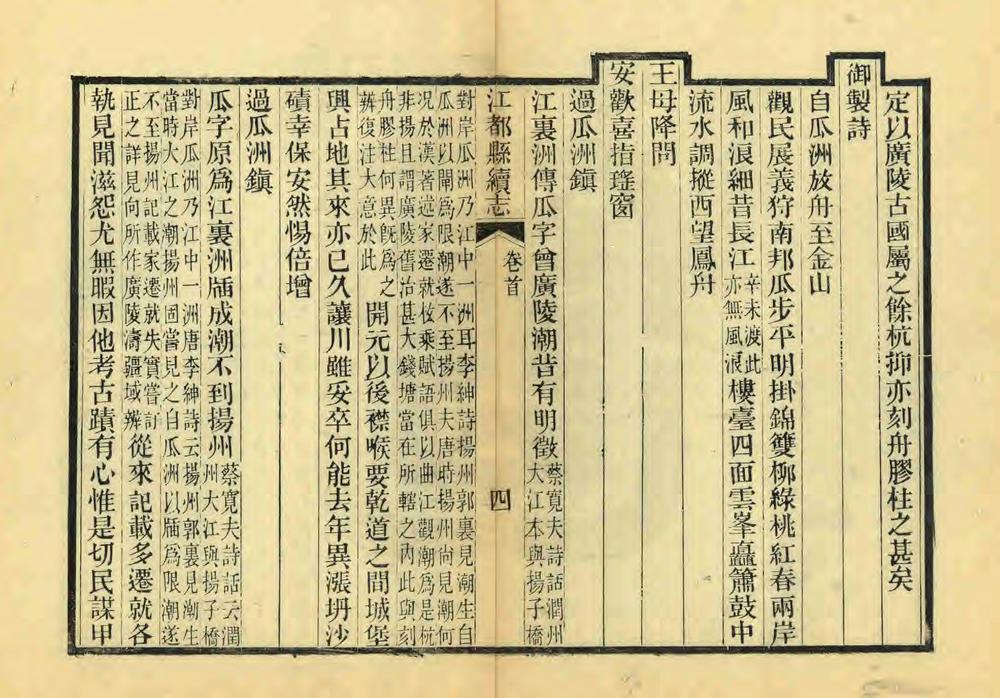 定以廣陵古國屬之餘杭抑亦刻舟膠柱之甚矣
御製詩
自瓜洲放舟至金山
觀民展義狩南邦瓜步平明掛錦雙柳綠桃紅春兩岸
風和浪細昔長江辛未渡此亦無風浪樓臺四面雲峯矗簫鼓中
流水調摐西望鳳舟
王母降問
安歡喜指瑤窗
過瓜洲鎮
江裏洲傳瓜字曾廣陵潮昔有明徵蔡寬夫詩話潤州大江本與揚子橋
江都縣續志 卷首 四
對岸瓜洲乃江中一洲耳李紳詩揚州郭裏見潮生自
瓜洲以閘爲限潮遂不至揚州夫唐時揚州尚見潮何
況於漢著述家遷就枚乘賦語俱以曲江觀潮爲是杭
非揚且謂廣陵舊治甚大錢塘當在所轄之內此與刻
舟膠柱何異旣爲之
辨復注大意於此開元以後襟喉要乾道之間城堡
興占地其來亦已久讓川雖妥卒何能去年異漲坍沙
磧幸保安然惕倍增
過瓜洲鎮
瓜字原爲江裏洲牐成潮不到揚州蔡寬夫詩話云潤州大江與揚子橋
對岸瓜洲乃江中一洲唐李紳詩云揚州郭裏見潮生
當時大江之潮揚州固嘗見之自瓜洲以牐爲限潮遂
不至揚州記載家遷就失實嘗訂
正之詳見向所作廣陵濤疆域辨從來記載多遷就各
執見聞滋怨尤無暇因他考古蹟有心惟是切民謀甲